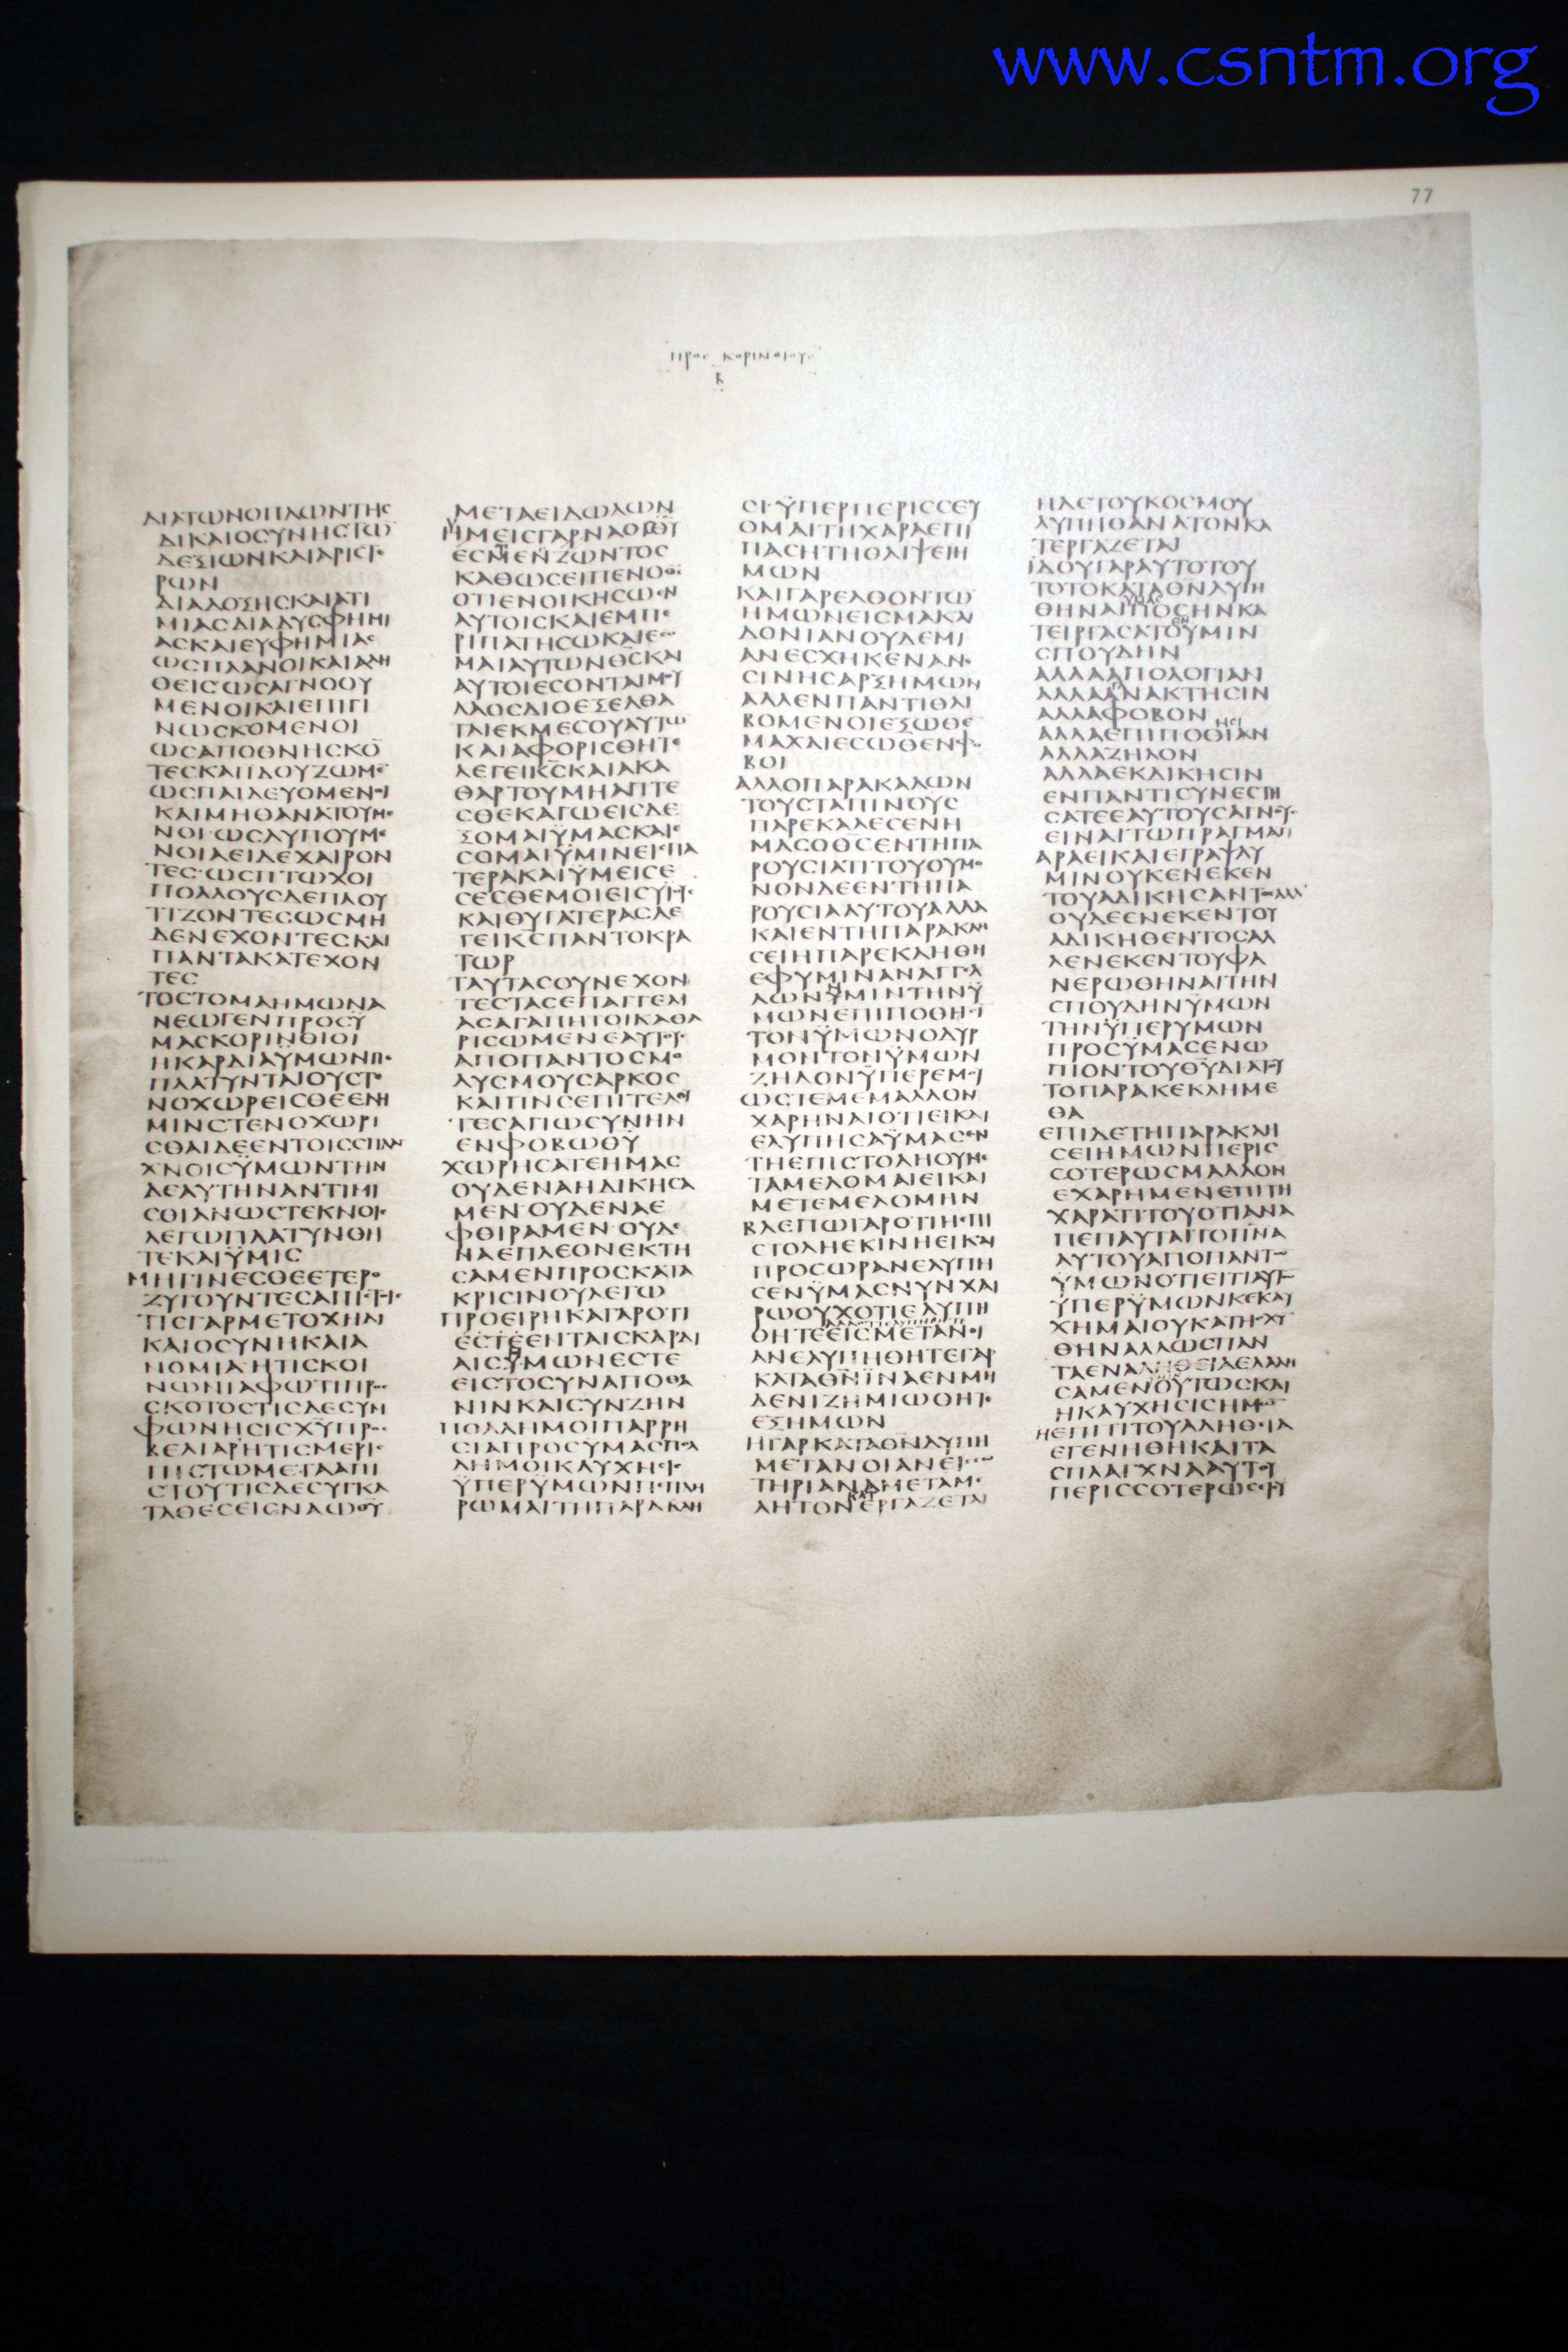 www.csntm.org
77
ΠΡΟϹ ΚΟΡΙΝΘΙΟΥϹ
Β
ΔΙΑΤΩΝΟΠΛΩΝΤΗϹ
ΔΙΚΑΙΟϹΥΝΗϹΤΩ̅
ΔΕΞΙΩΝΚΑΙΑΡΙϹΤΕ
ΡΩΝ
ΔΙΑΔΟΞΗϹΚΑΙΑΤΙ
ΜΙΑϹΔΙΑΔΥϹΦΗΜΙ
ΑϹΚΑΙΕΥΦΗΜΙΑϹ
ΩϹΠΛΑΝΟΙΚΑΙΑΛΗ
ΘΕΙϹΩϹΑΓΝΟΟΥ
ΜΕΝΟΙΚΑΙΕΠΙΓΙ
ΝΩϹΚΟΜΕΝΟΙ
ΩϹΑΠΟΘΝΗϹΚΟ̅
ΤΕϹΚΑΙΙΔΟΥΖΩΜΕ̅
ΩϹΠΑΙΔΕΥΟΜΕΝΟΙ
ΚΑΙΜΗΘΑΝΑΤΟΥΜΕ
ΝΟΙΩϹΛΥΠΟΥΜΕ
ΝΟΙΑΕΙΔΕΧΑΙΡΟΝ
ΤΕϹΩϹΠΤΩΧΟΙ
ΠΟΛΛΟΥϹΔΕΠΛΟΥ
ΤΙΖΟΝΤΕϹΩϹΜΗ
ΔΕΝΕΧΟΝΤΕϹΚΑΙ
ΠΑΝΤΑΚΑΤΕΧΟΝ
ΤΕϹ
ΤΟϹΤΟΜΑΗΜΩΝΑ
ΝΕΩΓΕΝΠΡΟϹΫ
ΜΑϹΚΟΡΙΝΘΙΟΙ
ΗΚΑΡΔΙΑΫΜΩΝΠΕ
ΠΛΑΤΥΝΤΑΙΟΥϹΤΕ
ΝΟΧΩΡΕΙϹΘΕΕΝΗ
ΜΙΝϹΤΕΝΟΧΩΡΙ
ϹΘΑΙΔΕΕΝΤΟΙϹϹΠΛΑ
ΧΝΟΙϹΫΜΩΝΤΗΝ
ΔΕΑΥΤΗΝΑΝΤΙΜΙ
ϹΘΙΑΝΩϹΤΕΚΝΟΙϹ
ΛΕΓΩΠΛΑΤΥΝΘΗ
ΤΕΚΑΙΫΜΙϹ
ΜΗΓΙΝΕϹΘΕΕΤΕΡΟ
ΖΥΓΟΥΝΤΕϹΑΠΙϹΤΟΙϹ
ΤΙϹΓΑΡΜΕΤΟΧΗΔΙ
ΚΑΙΟϹΥΝΗΚΑΙΑ
ΝΟΜΙΑΗΤΙϹΚΟΙ
ΝΩΝΙΑΦΩΤΙΠΡΟϹ
ϹΚΟΤΟϹΤΙϹΔΕϹΥΜ
ΦΩΝΗϹΙϹΧ̅Υ̅ΠΡΟϹ
ΒΕΛΙΑΡΗΤΙϹΜΕΡΙϹ
ΠΙϹΤΩΜΕΤΑΑΠΙ
ϹΤΟΥΤΙϹΔΕϹΥΓΚΑ
ΤΑΘΕϹΕΙϹΝΑΩΘ̅Υ̅
ΜΕΤΑΕΙΔΩΛΩΝ
ΗΜΕΙϹΓΑΡΝΑΟϹΘ̅Υ̅
ΕϹΜΕΝΖΩΝΤΟϹ
ΚΑΘΩϹΕΙΠΕΝΟΘ̅Ϲ̅
ΟΤΙΕΝΟΙΚΗϹΩΕΝ
ΑΥΤΟΙϹΚΑΙΕΜΠΕ
ΡΙΠΑΤΗϹΩΚΑΙΕϹΟ
ΜΑΙΑΥΤΩΝΘ̅Ϲ̅ΚΑΙ
ΑΥΤΟΙΕϹΟΝΤΑΙΜΟΥ
ΛΑΟϹΔΙΟΕΞΕΛΘΑ
ΤΑΙΕΚΜΕϹΟΥΑΥΤΩ̅
ΚΑΙΑΦΟΡΙϹΘΗΤΕ
ΛΕΓΕΙΚ̅Ϲ̅ΚΑΙΑΚΑ
ΘΑΡΤΟΥΜΗΑΠΤΕ
ϹΘΕΚΑΓΩΕΙϹΔΕ
ΞΟΜΑΙΫΜΑϹΚΑΙΕ
ϹΟΜΑΙΫΜΙΝΕΙϹΠΑ
ΤΕΡΑΚΑΙΫΜΕΙϹΕ
ϹΕϹΘΕΜΟΙΕΙϹΫΙΟΥϹ
ΚΑΙΘΥΓΑΤΕΡΑϹΛΕ
ΓΕΙΚ̅Ϲ̅ΠΑΝΤΟΚΡΑ
ΤΩΡ
ΤΑΥΤΑϹΟΥΝΕΧΟΝ
ΤΕϹΤΑϹΕΠΑΓΓΕΛΙ
ΑϹΑΓΑΠΗΤΟΙΚΑΘΑ
ΡΙϹΩΜΕΝΕΑΥΤΟΥϹ
ΑΠΟΠΑΝΤΟϹΜΟ
ΛΥϹΜΟΥϹΑΡΚΟϹ
ΚΑΙΠΝϹΕΠΙΤΕΛΟΥ
ΤΕϹΑΓΙΩϹΥΝΗΝ
ΕΝΦΟΒΩΘ̅Υ̅
ΧΩΡΗϹΑΤΕΗΜΑϹ
ΟΥΔΕΝΑΗΔΙΚΗϹΑ
ΜΕΝΟΥΔΕΝΑΕ
ΦΘΙΡΑΜΕΝΟΥΔΕ
ΝΑΕΠΛΕΟΝΕΚΤΗ
ϹΑΜΕΝΠΡΟϹΚΑΤΑ
ΚΡΙϹΙΝΟΥΛΕΓΩ
ΠΡΟΕΙΡΗΚΑΓΑΡΟΤΙ
ΕϹΤΕΕΝΤΑΙϹΚΑΡΔΙ
ΑΙϹΫΜΩΝΕϹΤΕ
ΕΙϹΤΟϹΥΝΑΠΟΘΑ
ΝΙΝΚΑΙϹΥΝΖΗΝ
ΠΟΛΛΗΜΟΙΠΑΡΡΗ
ϹΙΑΠΡΟϹΥΜΑϹΠΟΛ
ΛΗΜΟΙΚΑΥΧΗϹΙϹ
ΫΠΕΡΫΜΩΝΠΕΠΛΗ
ΡΩΜΑΙΤΗΠΑΡΑΚΛΗ
ϹΙΫΠΕΡΠΕΡΙϹϹΕΥ
ΟΜΑΙΤΗΧΑΡΑΕΠΙ
ΠΑϹΗΤΗΘΛΙΨΕΙΗ
ΜΩΝ
ΚΑΙΓΑΡΕΛΘΟΝΤΩ̅
ΗΜΩΝΕΙϹΜΑΚΑΙ
ΔΟΝΙΑΝΟΥΔΕΜΙ
ΑΝΕϹΧΗΚΕΝΑΝΕ
ϹΙΝΗϹΑΡΞΗΜΩΝ
ΑΛΛΕΝΠΑΝΤΙΘΛΙ
ΒΟΜΕΝΟΙΕΞΩΘΕ̅
ΜΑΧΑΙΕϹΩΘΕΝΦΟ
ΒΟΙ
ΑΛΛΟΠΑΡΑΚΑΛΩΝ
ΤΟΥϹΤΑΠΙΝΟΥϹ
ΠΑΡΕΚΑΛΕϹΕΝΗ
ΜΑϹΟΘ̅Ϲ̅ΕΝΤΗΠΑ
ΡΟΥϹΙΑΤΙΤΟΥΟΥΜΟ
ΝΟΝΔΕΕΝΤΗΠΑ
ΡΟΥϹΙΑΑΥΤΟΥΑΛΛΑ
ΚΑΙΕΝΤΗΠΑΡΑΚΛΗ
ϹΕΙΗΠΑΡΕΚΛΗΘΗ
ΕΦΥΜΙΝΑΝΑΓΓΕΛ
ΛΩΝΫΜΙΝΤΗΝΫ
ΜΩΝΕΠΙΠΟΘΗϹΙ
ΤΟΝΫΜΩΝΟΔΥΡ
ΜΟΝΤΟΝΫΜΩΝ
ΖΗΛΟΝΫΠΕΡΕΜΟΥ
ΩϹΤΕΜΕΜΑΛΛΟΝ
ΧΑΡΗΝΑΙΟΤΙΕΙΚΑΙ
ΕΛΥΠΗϹΑΫΜΑϹΕΝ
ΤΗΕΠΙϹΤΟΛΗΟΥΜΕ
ΤΑΜΕΛΟΜΑΙΕΙΚΑΙ
ΜΕΤΕΜΕΛΟΜΗΝ
ΒΛΕΠΩΓΑΡΟΤΙΗΕΠΙ
ϹΤΟΛΗΕΚΙΝΗΕΙΚΑΙ
ΠΡΟϹΩΡΑΝΕΛΥΠΗ
ϹΕΝΫΜΑϹΝΥΝΧΑΙ
ΡΩΟΥΧΟΤΙΕΛΥΠΗ
ΘΗΤΕΕΙϹΜΕΤΑΝΟΙ
ΑΝΕΛΥΠΗΘΗΤΕΓΑΡ
ΚΑΤΑΘ̅Ν̅ΪΝΑΕΝΜΗ
ΔΕΝΙΖΗΜΙΩΘΗΤΕ
ΕΞΗΜΩΝ
ΗΓΑΡΚΑΤΑΘ̅Ν̅ΛΥΠΗ
ΜΕΤΑΝΟΙΑΝΕΙϹϹΩ
ΤΗΡΙΑΝΑΜΕΤΑΜΕ
ΛΗΤΟΝΕΡΓΑΖΕΤΑΙ
ΗΔΕΤΟΥΚΟϹΜΟΥ
ΛΥΠΗΘΑΝΑΤΟΝΚΑ
ΤΕΡΓΑΖΕΤΑΙ
ΪΔΟΥΓΑΡΑΥΤΟΤΟΥ
ΤΟΤΟΚΑΤΑΘ̅Ν̅ΛΥΠΗ
ΘΗΝΑΙΠΟϹΗΝΚΑ
ΤΕΙΡΓΑϹΑΤΟΫΜΙΝ
ϹΠΟΥΔΗΝ
ΑΛΛΑΑΠΟΛΟΓΙΑΝ
ΑΛΛΑΑΝΑΚΤΗϹΙΝ
ΑΛΛΑΦΟΒΟΝ
ΑΛΛΑΕΠΙΠΟΘΙΑΝ
ΑΛΛΑΖΗΛΟΝ
ΑΛΛΑΕΚΔΙΚΗϹΙΝ
ΕΝΠΑΝΤΙϹΥΝΕϹΤΗ
ϹΑΤΕΕΑΥΤΟΥϹΑΓΝΟΥϹ
ΕΙΝΑΙΤΩΠΡΑΓΜΑΤΙ
ΑΡΑΕΙΚΑΙΕΓΡΑΨΑΫ
ΜΙΝΟΥΚΕΝΕΚΕΝ
ΤΟΥΑΔΙΚΗϹΑΝΤΟϹΑΛΛ
ΟΥΔΕΕΝΕΚΕΝΤΟΥ
ΑΔΙΚΗΘΕΝΤΟϹΑΛ
ΛΕΝΕΚΕΝΤΟΥΦΑ
ΝΕΡΩΘΗΝΑΙΤΗΝ
ϹΠΟΥΔΗΝΫΜΩΝ
ΤΗΝΫΠΕΡΥΜΩΝ
ΠΡΟϹΫΜΑϹΕΝΩ
ΠΙΟΝΤΟΥΘ̅Υ̅ΔΙΑΤΟΥ
ΤΟΠΑΡΑΚΕΚΛΗΜΕ
ΘΑ
ΕΠΙΔΕΤΗΠΑΡΑΚΛΗ
ϹΕΙΗΜΩΝΠΕΡΙϹ
ϹΟΤΕΡΩϹΜΑΛΛΟΝ
ΕΧΑΡΗΜΕΝΕΠΙΤΗ
ΧΑΡΑΤΙΤΟΥΟΤΙΑΝΑ
ΠΕΠΑΥΤΑΙΤΟΠΝΑ
ΑΥΤΟΥΑΠΟΠΑΝΤΩ̅
ΫΜΩΝΟΤΙΕΙΤΙΑΥΤΩ
ΫΠΕΡΫΜΩΝΚΕΚΑΥ
ΧΗΜΑΙΟΥΚΑΤΗϹΧΥ̅
ΘΗΝΑΛΛΩϹΠΑΝ
ΤΑΕΝΑΛΗΘΕΙΑΕΛΑΛΗ
ϹΑΜΕΝΟΥΤΩϹΚΑΙ
ΗΚΑΥΧΗϹΙϹΗΜΩ̅
ΗΕΠΙΤΙΤΟΥΑΛΗΘΕΙΑ
ΕΓΕΝΗΘΗΚΑΙΤΑ
ϹΠΛΑΓΧΝΑΑΥΤΟΥ
ΠΕΡΙϹϹΟΤΕΡΩϹΕΙϹ